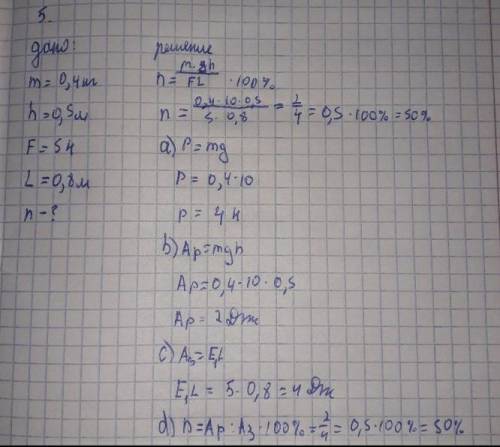 5.
дано:
m = 0,4 кг
h = 0,5 м
F = 5 Н
L = 0,8 м
n - ?
решение
n = m·gh / FL · 100%
n = 0,4·10·0,5 / 5·0,8 = 2/4 = 0,5·100% = 50%
a) P = mg
P = 0,4·10
p = 4 н
b) Ap = mgh
Ap = 0,4·10·0,5
Ap = 2 Дж
c) Aз = F,L
F,L = 5·0,8 = 4 Дж
d) n = Ap : Aз · 100% = 2/4 = 0,5·100% = 50%